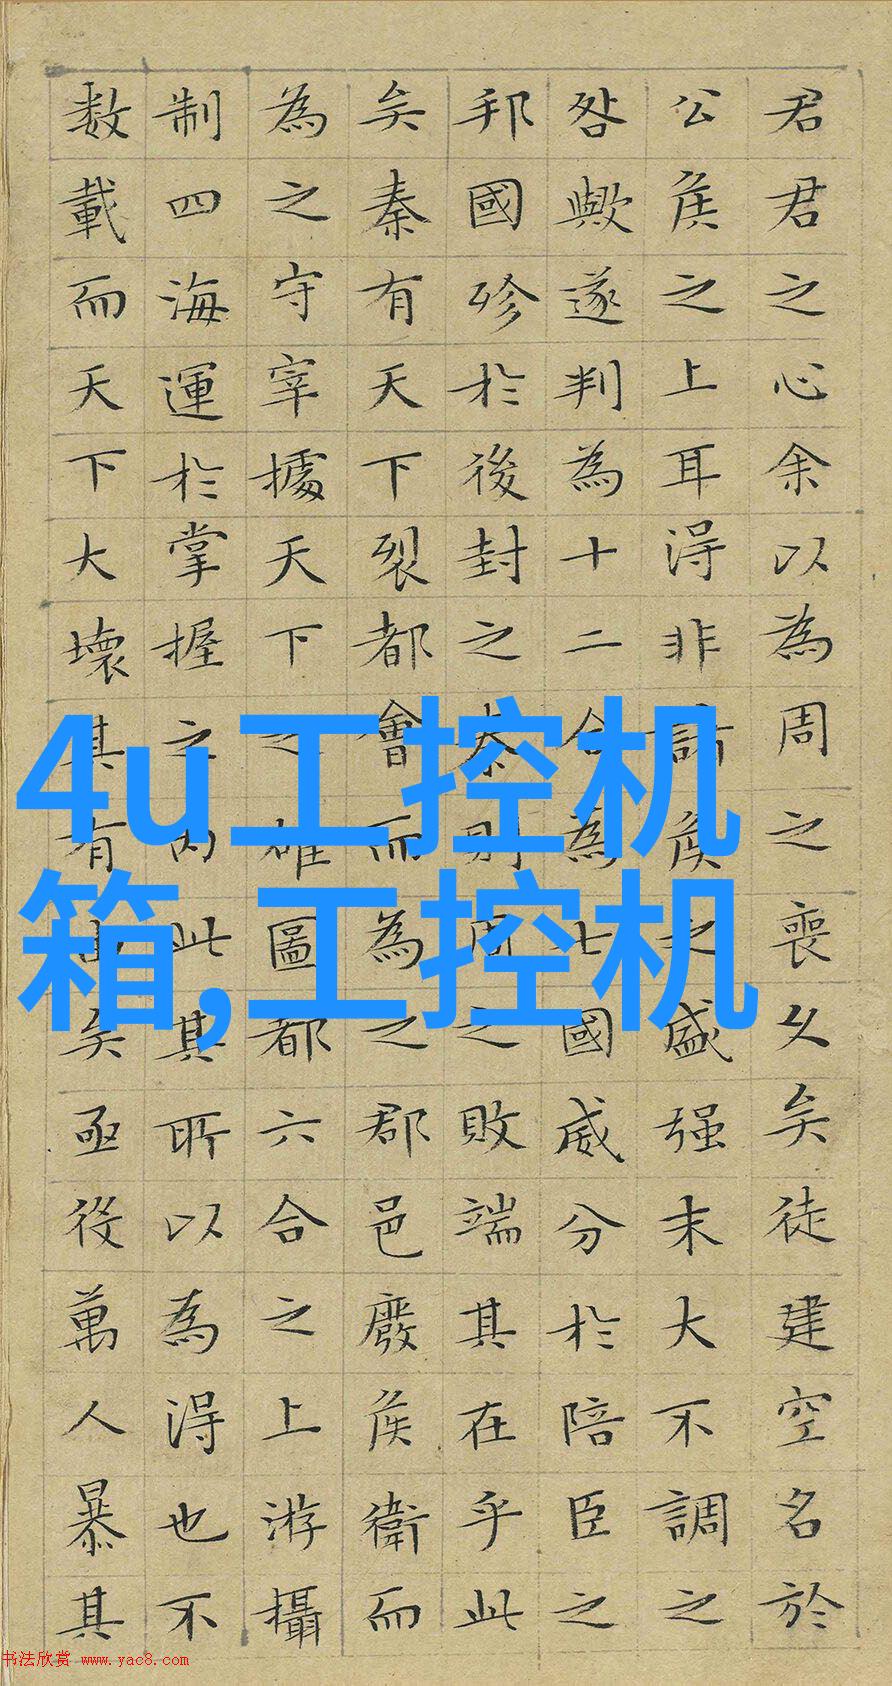 君君之心余以為周之喪久矣徒建空名於
公侯之上耳得非諸侯之盛强末大不調之
咎歟遂判為十二合為七國威分於陪臣之
邦國殄於後封之秦則周之敗端其在乎此
矣秦有天下裂都會而為之郡邑廢侯衛而
為之守宰據天下之雄圖都六合之上游攝
制四海運於掌握之内此其所以為得也不
数載而天下大壞其有由矣亟役萬人暴其
4u工控机
箱,工控机
书法欣赏 www.yac8.com